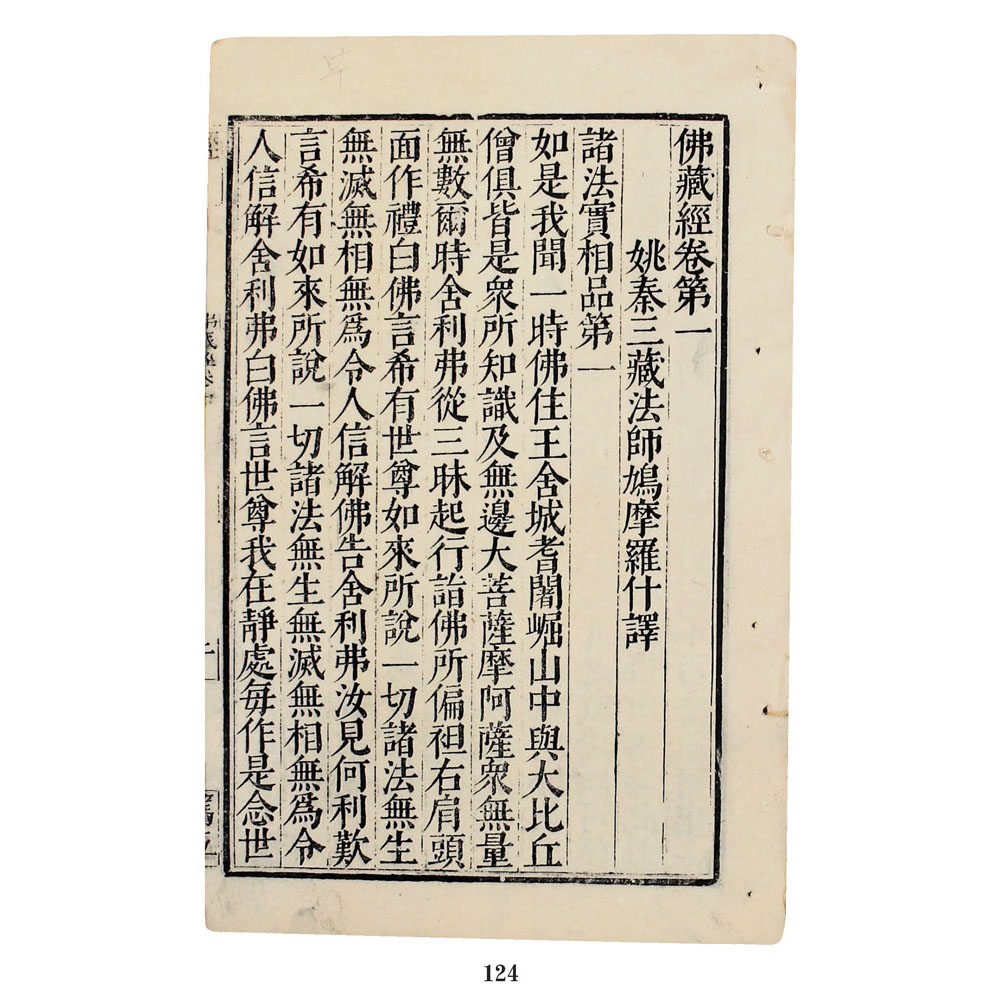 佛藏經卷第一
姚秦三藏法師鳩摩羅什譯
諸法實相品第一
如是我聞一時佛住王舍城耆闍崛山中與大比丘
僧俱皆是衆所知識及無邊大菩薩摩訶薩衆無量
無數爾時舍利弗從三昧起行詣佛所偏袒右肩頭
面作禮白佛言希有世尊如來所說一切諸法無生
無滅無相無爲令人信解佛告舍利弗汝見何利歎
言希有如來所說一切諸法無生無滅無相無爲令
人信解舍利弗白佛言世尊我在靜處每作是念世
124